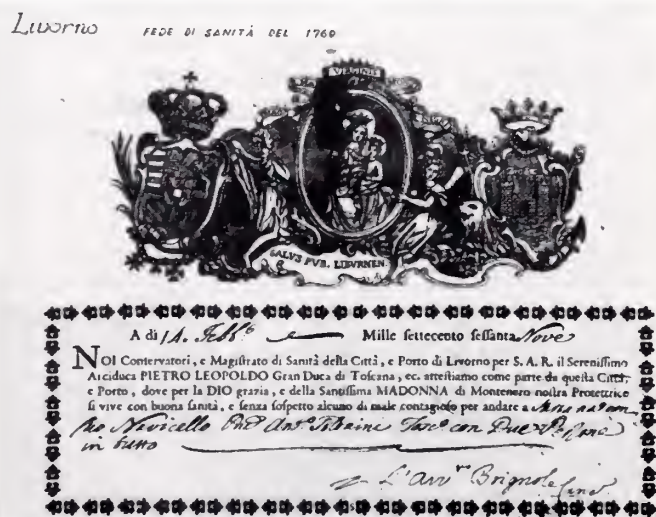 Livorno FEDE DI SANITÀ DEL 1769
VIRGINIS
SALVS PVB. LIBVRNEN.
A dì 14. Febb.º Mille settecento sessanta Nove
NOI Conservatori, e Magistrato di Sanità della Città, e Porto di Livorno per S. A. R. il Serenissimo
Arciduca PIETRO LEOPOLDO Gran Duca di Toscana, ec. attestiamo come parte da questa Città,
e Porto, dove per la DIO grazia, e della Santissima MADONNA di Montenero nostra Protettrice
si vive con buona sanità, e senza sospetto alcuno di male contagioso per andare a
Navicello Ant.º con Due Persone
in tutto
L'Avv. Brignole